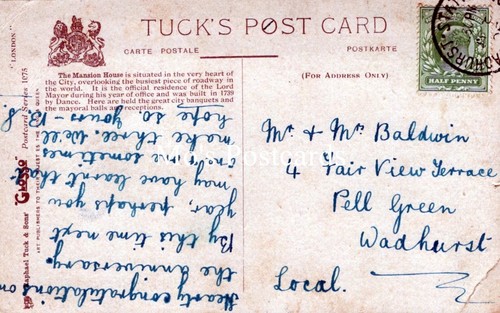 TUCK'S POST CARD
CARTE POSTALE
POSTKARTE
(FOR ADDRESS ONLY)
The Mansion House is situated in the very heart of
the City, overlooking the busiest piece of roadway in
the world. It is the official residence of the Lord
Mayor during his year of office and was built in 1739
by Dance. Here are held the great city banquets and
the mayoral balls and receptions.
"LONDON."
Postcard Series 1075
"Glosso"
Raphael Tuck & Sons'
ART PUBLISHERS TO THE KING & QUEEN
Hearty congratulations on
the anniversary.
By this time next
year, perhaps you
may have learnt that
one & one sometimes
make three. We'll
hope so. Yours - B.J.
Mr & Mrs Baldwin
4 Fair View Terrace
Pell Green
Wadhurst
Local.
HALF PENNY
WADHURST
Postcards